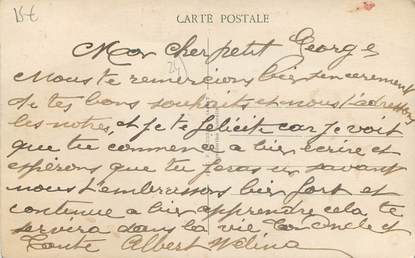 15€
CARTE POSTALE
Mon cher petit George
Nous te remercions bien sincerement
de tes bons souhaits et nous t'adressons
les notres, et je te félicite car je voit
que tu commence a bien écrire et
espérons que tu feras un savant
nous t'embrassons bien fort et
continue a bien apprendre cela te
servira dans la vie Ton oncle et
Tante Albert